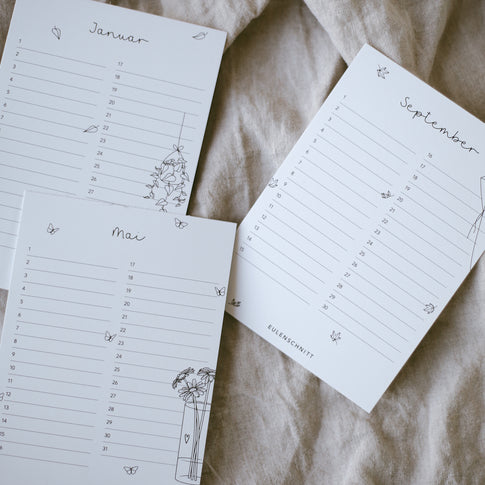 Januar
1
2
3
4
5
6
7
8
9
17
18
19
20
21
22
23
24
25
26
27
Mai
1
2
3
4
5
6
7
8
9
10
11
12
13
14
15
17
18
19
20
21
22
23
24
25
26
27
28
29
30
31
September
1
2
3
4
5
6
7
8
9
10
11
12
13
14
15
16
17
18
19
20
21
22
23
24
25
26
27
28
29
30
EULENSCHNITT